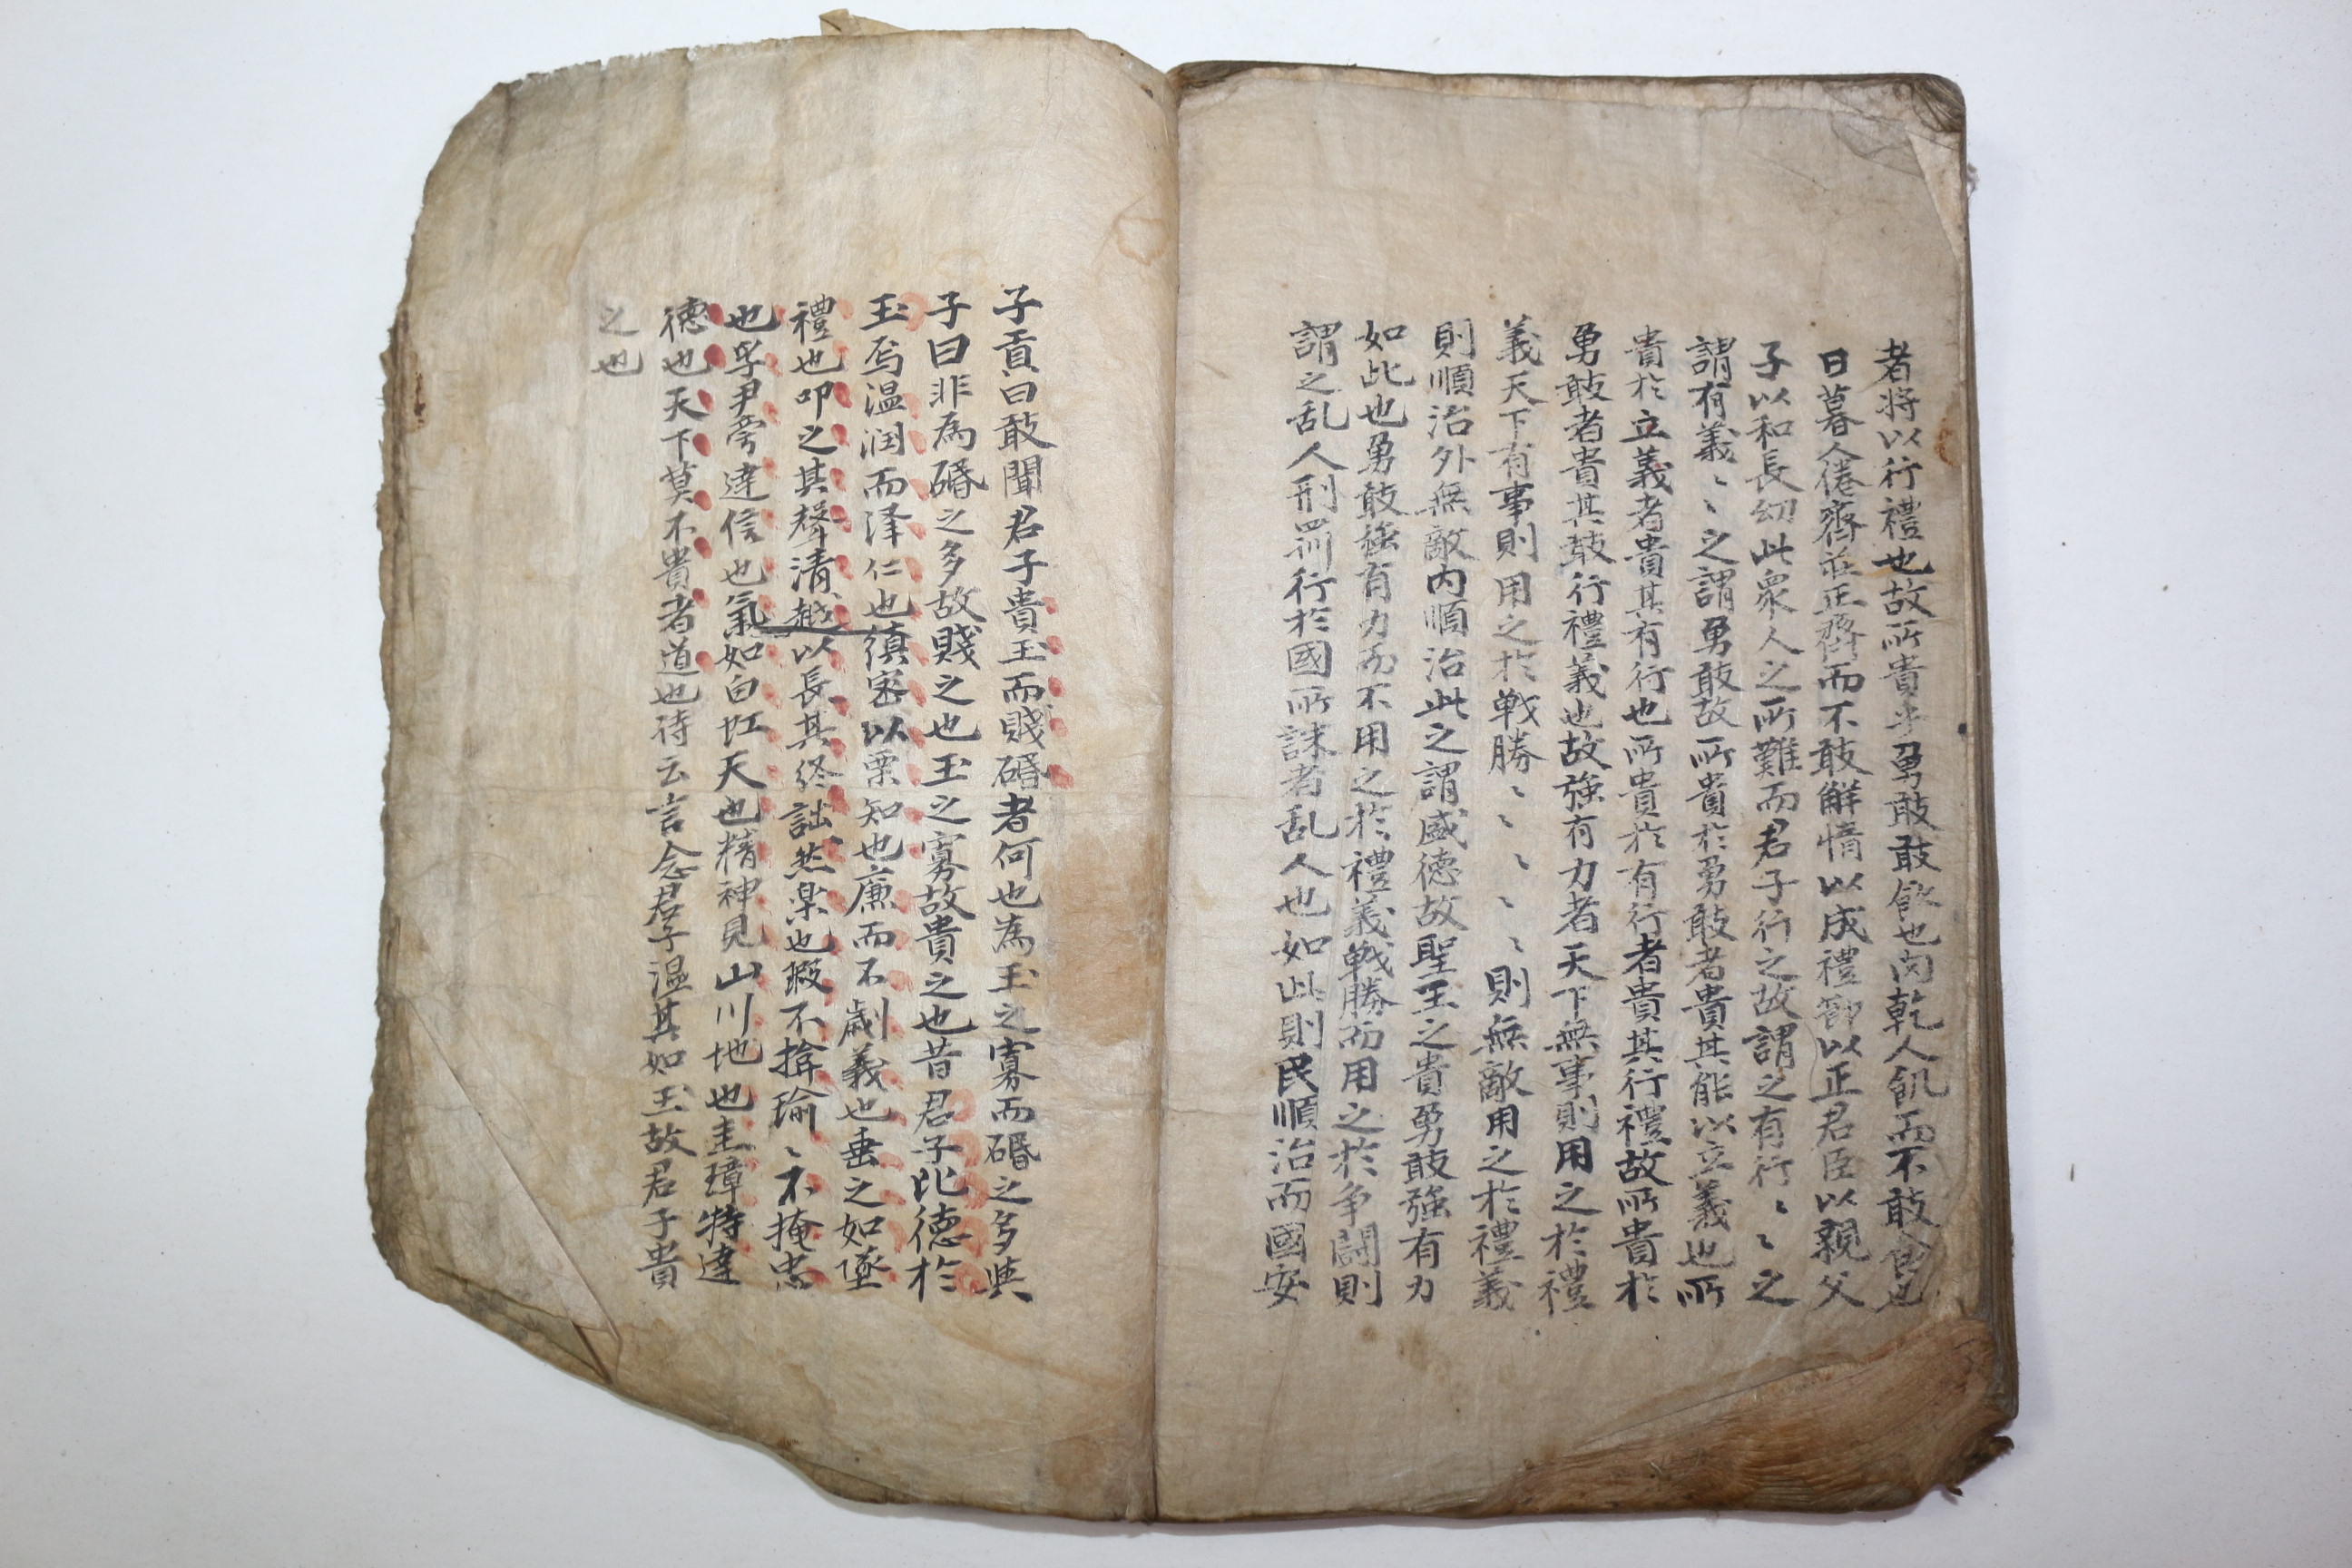 者將以行禮也故所貴乎勇敢敢飮也肉乾人飢而不敢食也
日暮人倦齊莊正齊而不敢解惰以成禮節以正君臣以親父
子以和長幼此衆人之所難而君子行之故謂之有行〻〻之
謂有義〻〻之謂勇敢故所貴於勇敢者貴其能以立義也所
貴於立義者貴其有行也所貴於有行者貴其行禮故所貴於
勇敢者貴其敢行禮義也故強有力者天下無事則用之於禮
義天下有事則用之於戰勝〻〻〻〻〻則無敵用之於禮義
則順治外無敵內順治此之謂盛德故聖王之貴勇敢強有力
如此也勇敢強有力而不用之於禮義戰勝而用之於爭鬪則
謂之乱人刑罰行於國所誅者乱人也如此則民順治而國安
子貢曰敢聞君子貴玉而賤碈者何也為玉之寡而碈之多與
子曰非為碈之多故賤之也玉之寡故貴之也昔君子比德於
玉焉温润而泽仁也縝宻以栗知也廉而不劌義也垂之如墜
禮也叩之其聲清越以長其终詘然楽也瑕不揜瑜〻不掩忠
也孚尹旁達信也氣如白虹天也精神見山川地也圭璋特達
德也天下莫不貴者道也待云言念君子温其如玉故君子貴
之也